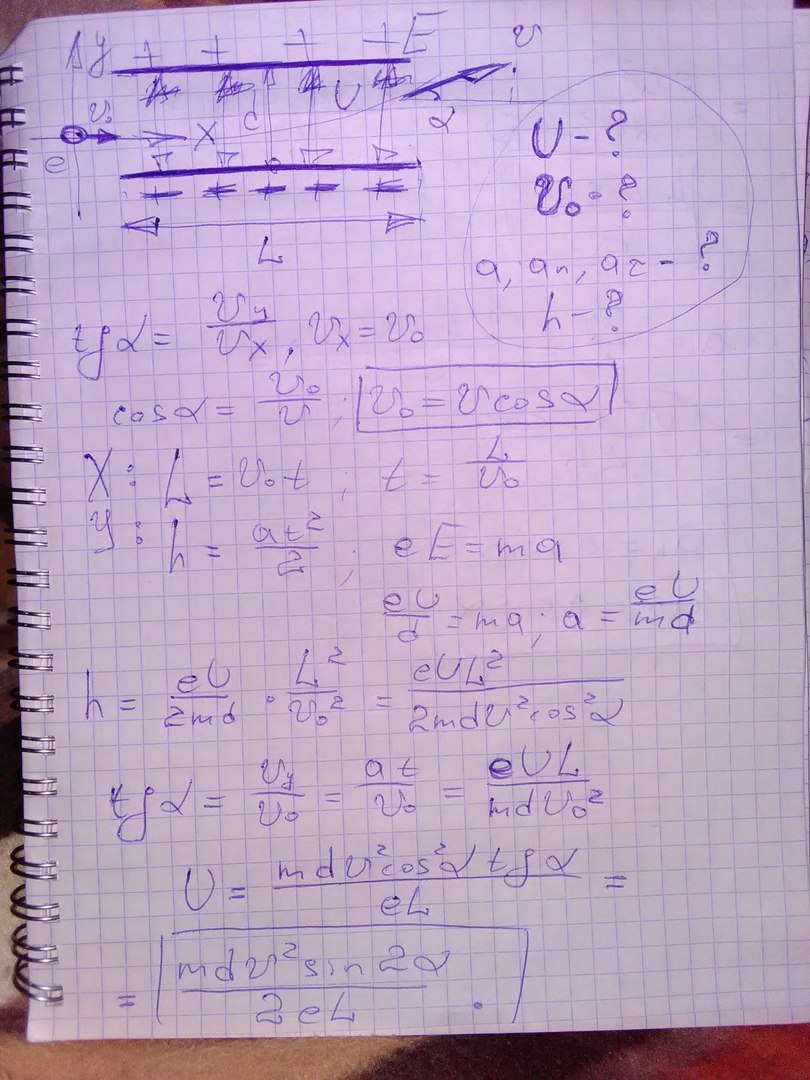 y + + + + E v
v₀ X d U α
e
L
U - ?
v₀ - ?
a, aₙ, aτ - ?
h - ?
tg α = v_y / v_x, v_x = v₀
cos α = v₀ / v ; v₀ = v cos α
X: L = v₀ t ; t = L / v₀
y: h = at² / 2 ; eE = ma
eU / d = ma ; a = eU / md
h = eU / 2md · L² / v₀² = eUL² / 2mdv²cos²α
tg α = v_y / v₀ = at / v₀ = eUL / mdv₀²
U = mdv²cos²α tg α / eL =
= mdv² sin 2α / 2eL .